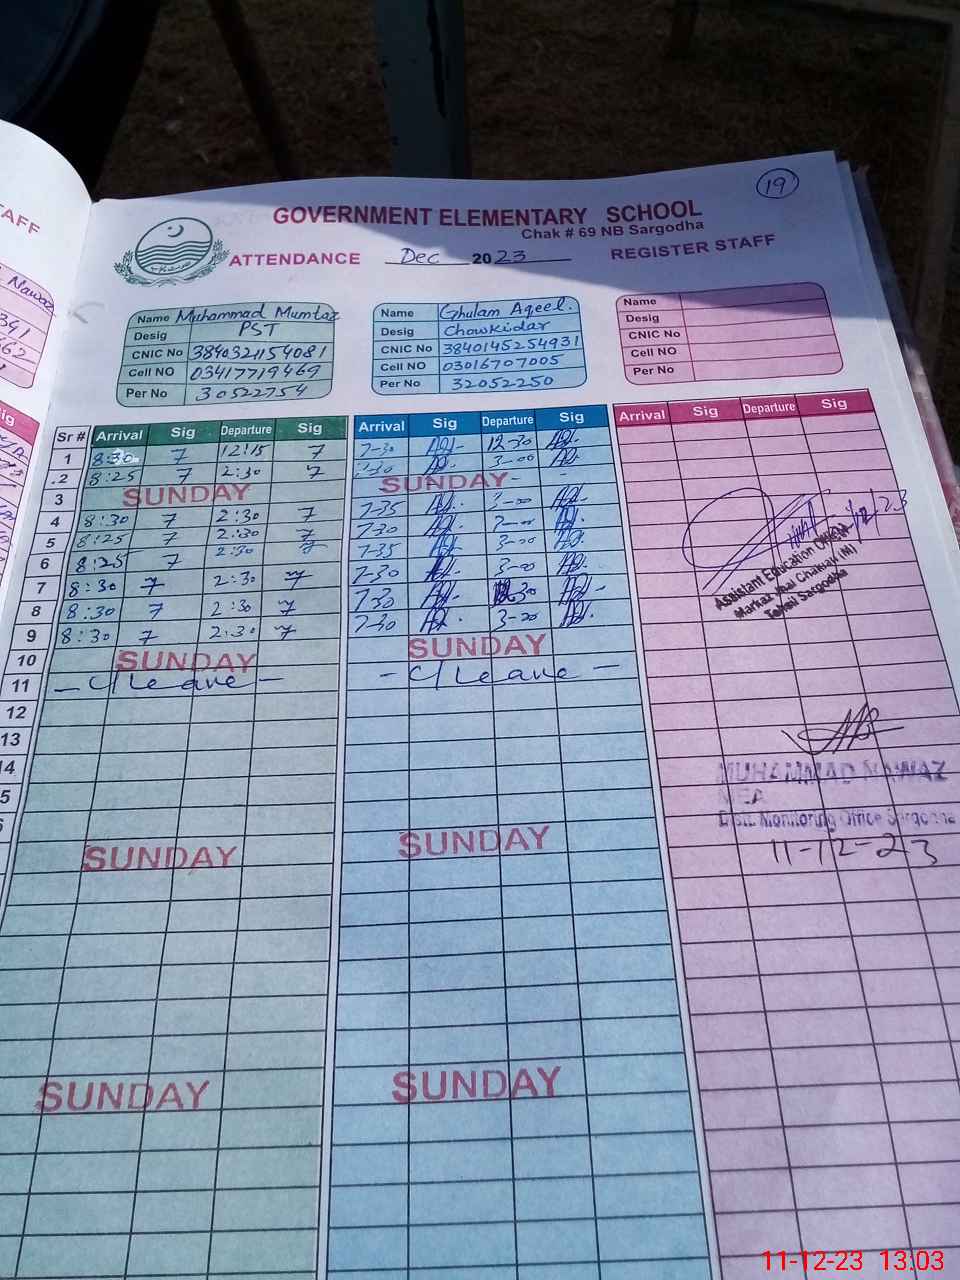 19
GOVERNMENT ELEMENTARY SCHOOL
Chak # 69 NB Sargodha
ATTENDANCE Dec 2023 REGISTER STAFF
TAFF
Nawaz
341
Name Muhammad Mumtaz
Desig PST
CNIC No 3840321154081
Cell NO 03417719469
Per No 30522754
Name Ghulam Aqeel.
Desig Chowkidar
CNIC No 3840145254931
Cell NO 03016707005
Per No 32052250
Name
Desig
CNIC No
Cell NO
Per No
Sr # Arrival Sig Departure Sig Arrival Sig Departure Sig Arrival Sig Departure Sig
1 8:30 12:15 7-30 12-30
2 8:25 2:30 7-30 3-00
3 SUNDAY SUNDAY
4 8:30 2:30 7-35 3-00
5 8:25 2:30 7-30 3-00
6 8:25 2:30 7-35 3-00
7 8:30 2:30 7-30 3-00
8 8:30 2:30 7-30
9 8:30 2:30 7-30 3-00
10 SUNDAY SUNDAY
11 - C/leave - - C/leave -
12
13
14
SUNDAY SUNDAY
SUNDAY SUNDAY
Assistant Education Officer
Markaz
Tehsil Sargodha
MUHAMMAD NAWAZ
MEA
Distt. Monitoring Office Sargodha
11-12-23
11-12-23 13:03